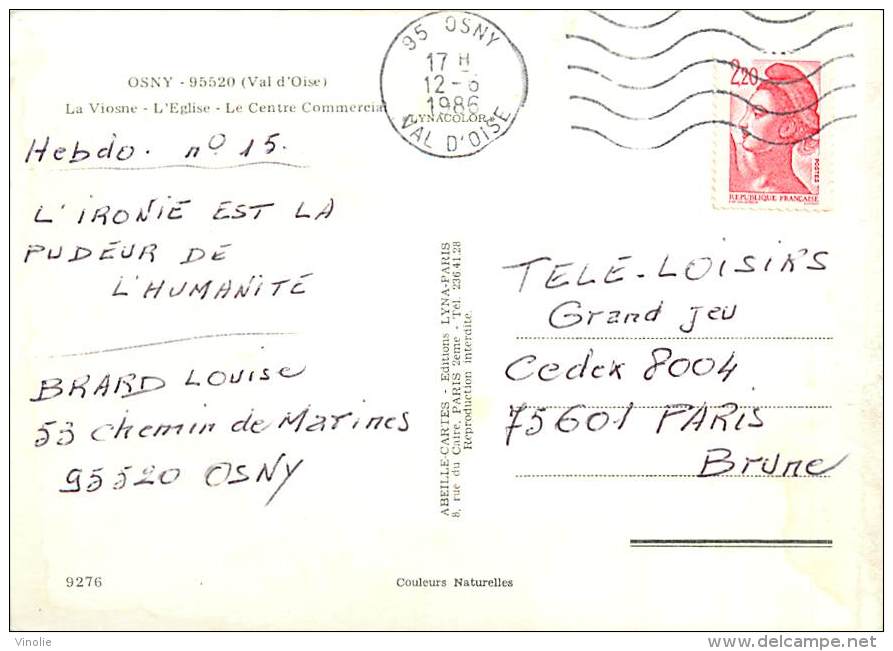 OSNY - 95520 (Val d'Oise)
La Viosne - L'Eglise - Le Centre Commercial
LYNACOLOR
95 OSNY
17 H
12-6
1986
VAL D'OISE
2,20
POSTES
REPUBLIQUE FRANÇAISE
Hebdo. nº 15.
L'IRONIE EST LA
PUDEUR DE
L'HUMANITÉ
BRARD LOUISE
53 Chemin de Marines
95520 OSNY
ABEILLE-CARTES - Editions LYNA-PARIS
8, rue du Caire, PARIS 2eme - Tél. 236.41.28
Reproduction interdite.
TELE-LOISIRS
Grand Jeu
Cedex 8004
75601 PARIS
Brune
9276
Couleurs Naturelles
Vinolie
www.delcampe.net